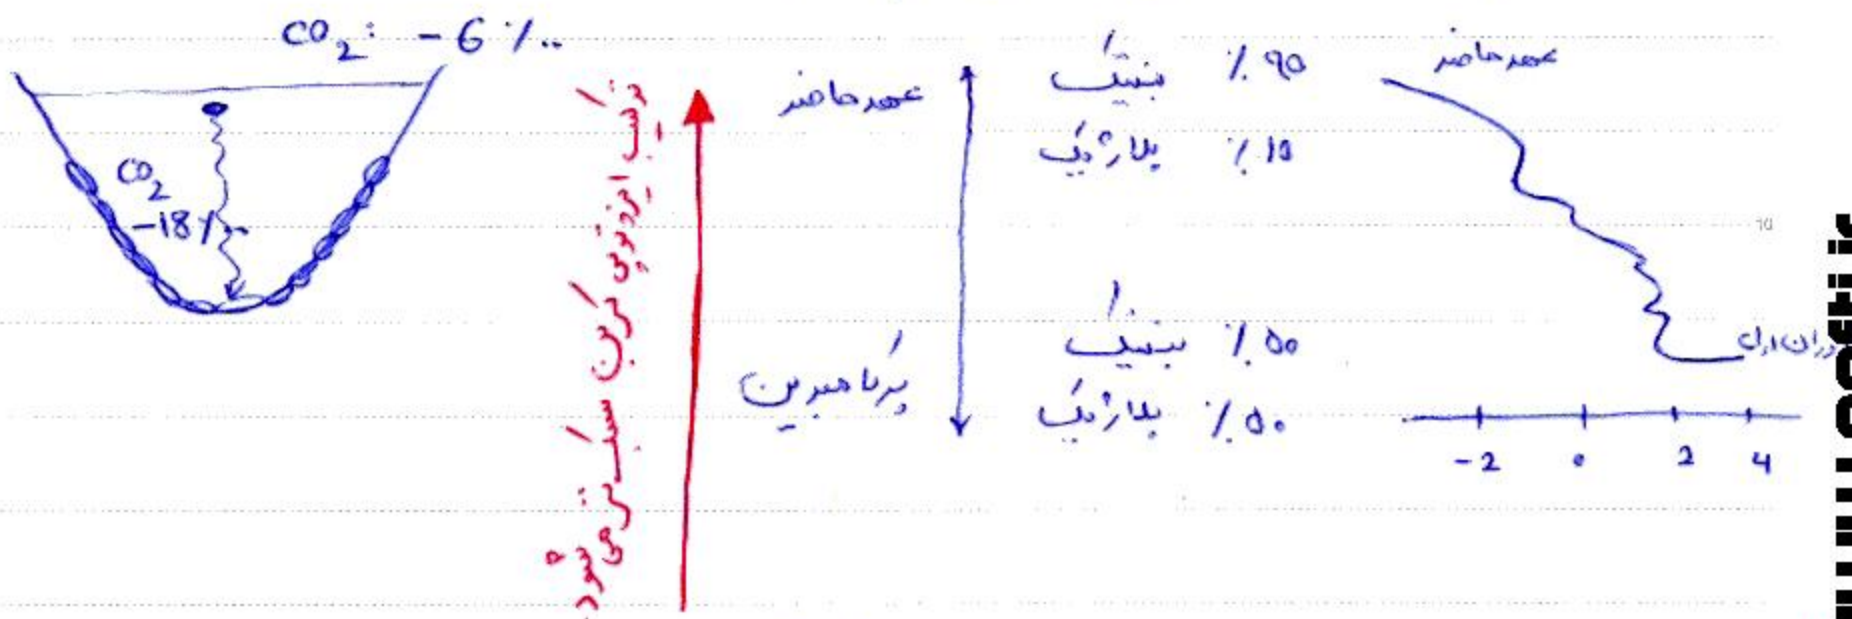 CO2: -6 ‰
CO2
-18 ‰
ترکیب ایزوتوپی کربن سبک‌تر می‌شود
عهد حاضر
پرکامبرین
۹۰٪ بنتیک
۱۰٪ پلاژیک
۵۰٪ بنتیک
۵۰٪ پلاژیک
عهد حاضر
دوران اول
-2 0 2 4
10